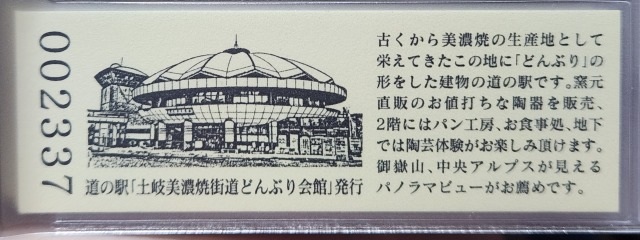 002337
道の駅「土岐美濃焼街道どんぶり会館」発行
古くから美濃焼の生産地として
栄えてきたこの地に「どんぶり」の
形をした建物の道の駅です。窯元
直販のお値打ちな陶器を販売、
2階にはパン工房、お食事処、地下
では陶芸体験がお楽しみ頂けます。
御嶽山、中央アルプスが見える
パノラマビューがお薦めです。